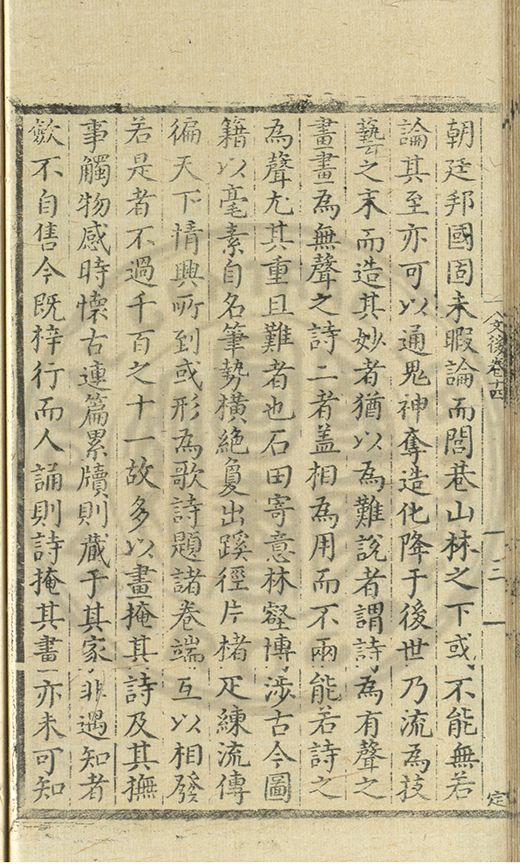 文後卷十四
三
定
朝廷邦國固未暇論而閭巷山林之下或不能無若
論其至亦可以通鬼神奪造化降于後世乃流為技
藝之末而造其妙者猶以為難說者謂詩為有聲之
畫畫為無聲之詩二者盖相為用而不兩能若詩之
為聲尤其重且難者也石田寄意林壑博渉古今圖
籍以毫素自名筆勢橫絶敻出蹊徑片楮疋練流傳
徧天下情興所到或形為歌詩題諸卷端互以相發
若是者不過千百之十一故多以畫掩其詩及其撫
事觸物感時懷古連篇累牘則蔵于其家非遇知者
歛不自售今既梓行而人誦則詩掩其畫亦未可知